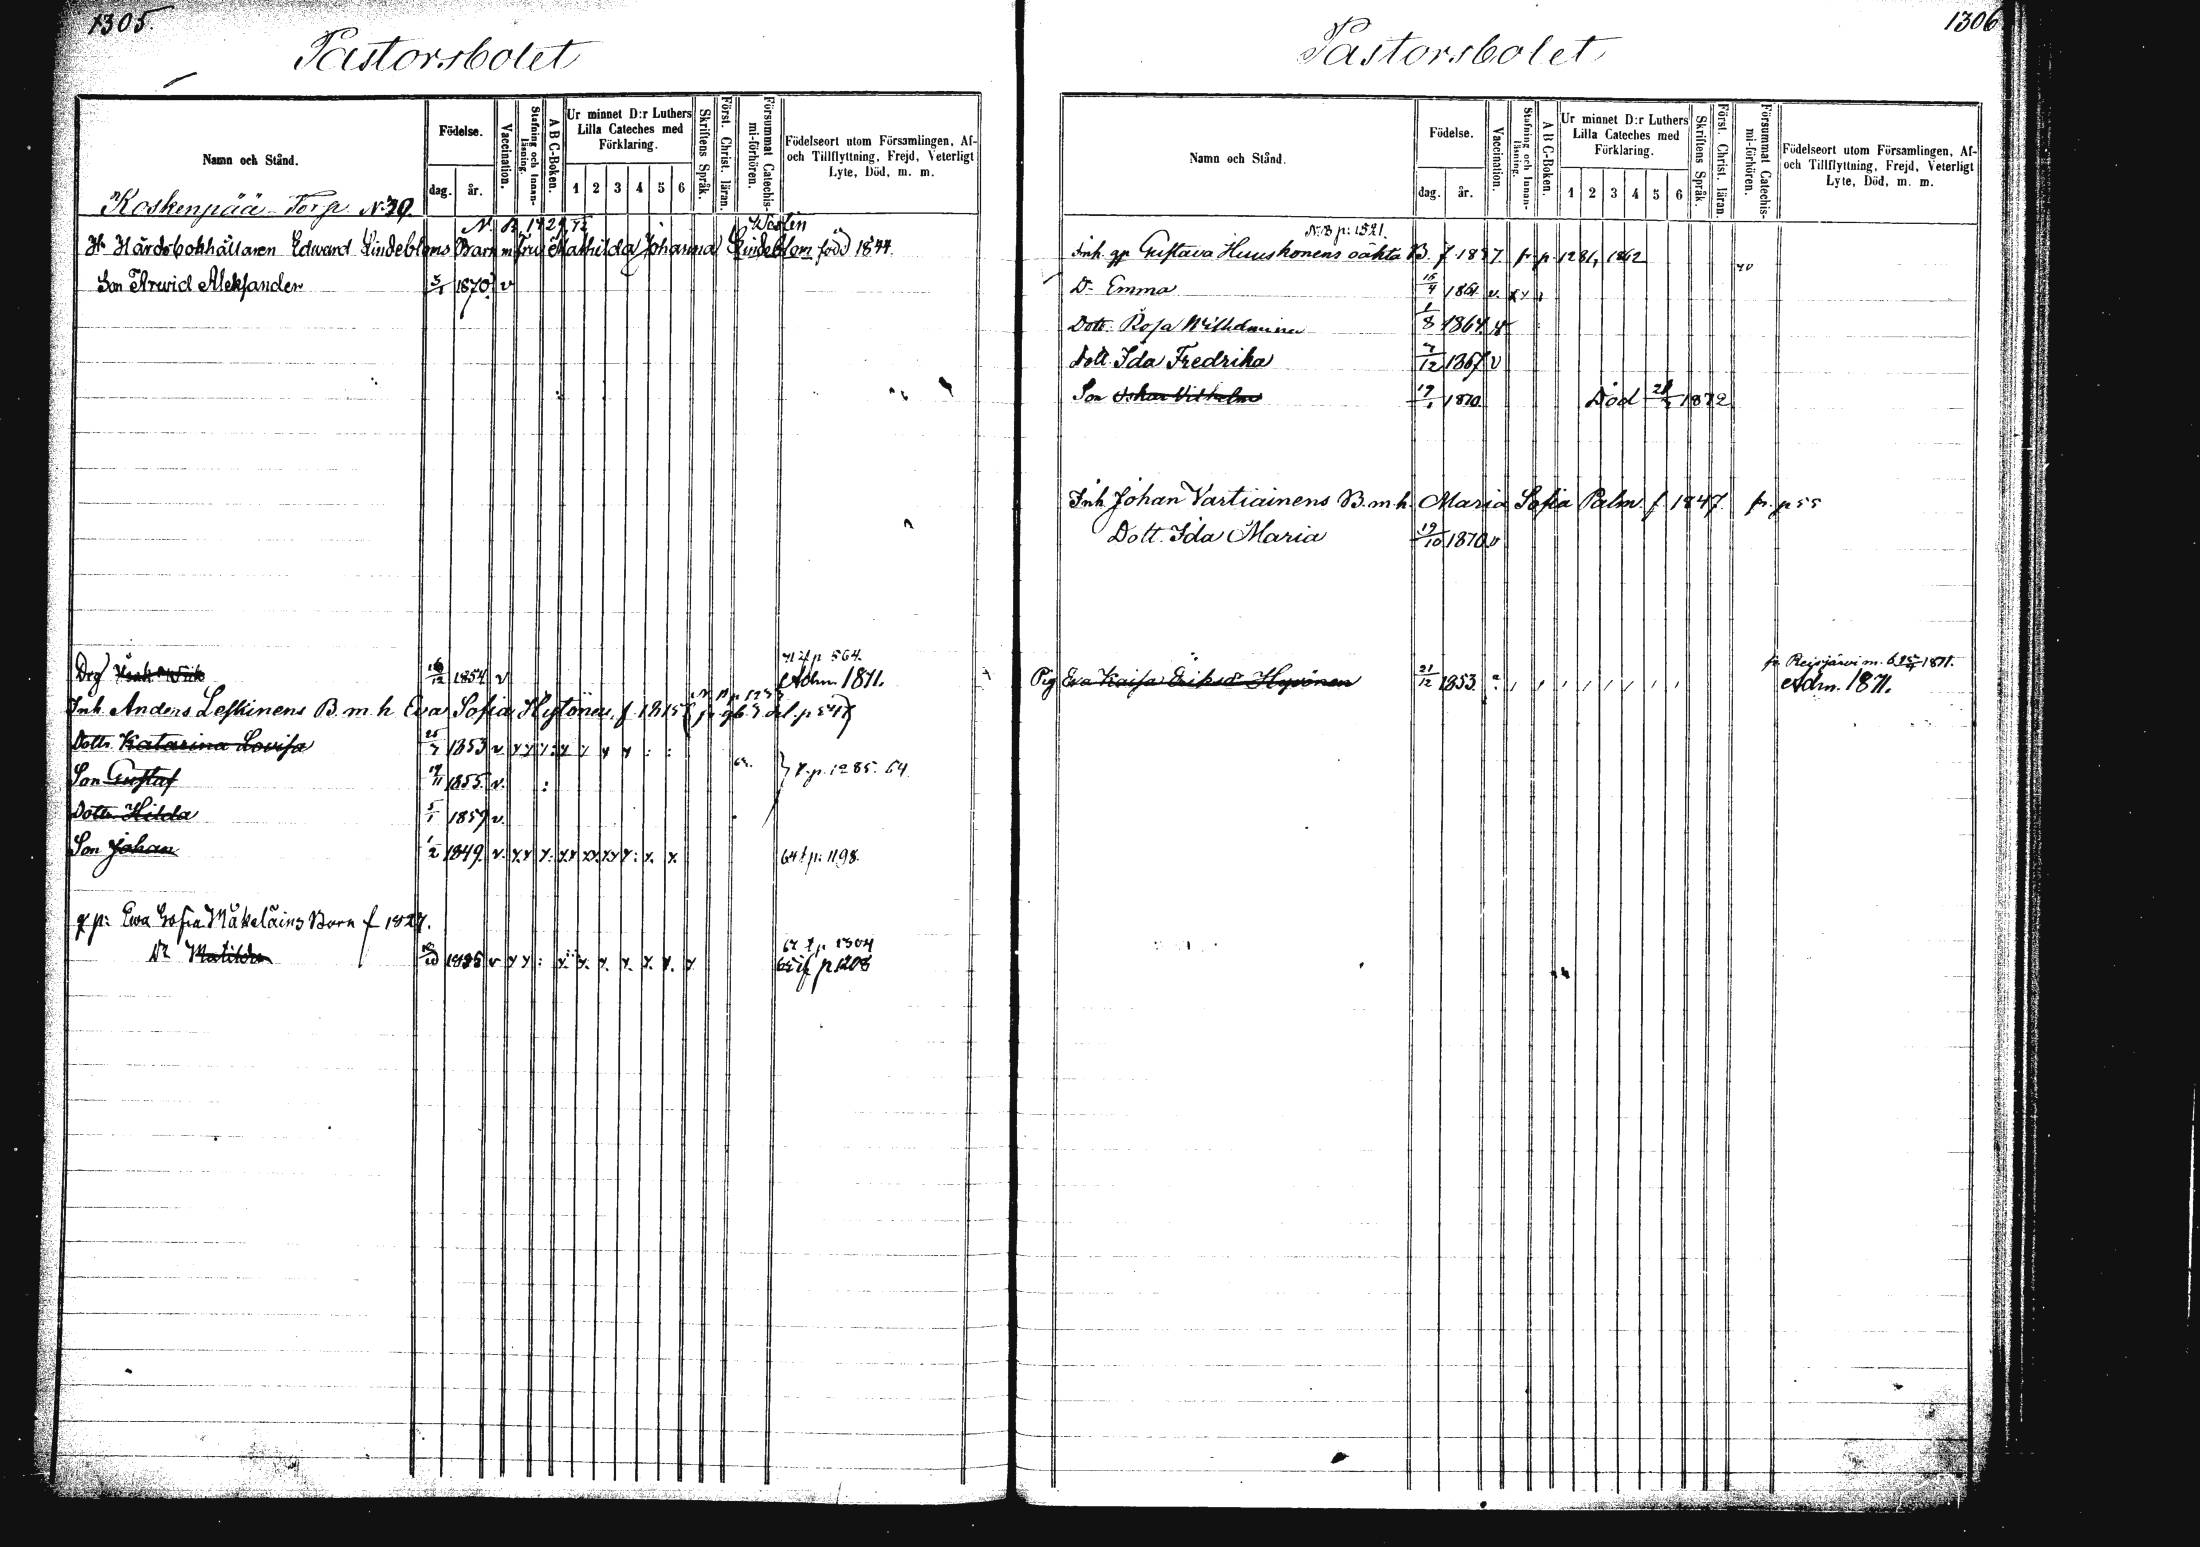 1305.
Pastorsbolet
Namn och Stånd.
Födelse.
dag. år.
Vaccination.
Stafning och Innanläsning.
A B C-Boken.
Ur minnet D:r Luthers Lilla Cateches med Förklaring.
1 2 3 4 5 6
Skriftens Språk.
Först. Christ. läran.
Försummat Catechismi-förhören.
Födelseort utom Församlingen, Af- och Tillflyttning, Frejd, Veterligt Lyte, Död, m. m.
Koskenpää Torp No 39.
Westin
Hr Härdsbokhållaren Edward Lindebloms Barn m fru Mathilda Johanna Lindeblom född 1844
Son Arwid Aleksander 1870. v
71 tf p 564.
Drg 1854 v Adm. 1871.
Inh. Anders Leskinens B. m. h Eva Sofia Hytönen f. 1815
Dottr. Katarina Lovisa 1853 v
Son Gustaf 19/11 1855. v. t. p. 1285. 64
Dottr. Hilda 5/1 1859 v.
Son Johan 1/2 1849. v. 64 t p: 1198.
q p: Ewa Sofia Mäkeläins Barn f 1827.
67 t p 1304
Dr Matilda v 65 tf p 1208
1306
Pastorsbolet
Namn och Stånd.
Födelse.
dag. år.
Vaccination.
Stafning och Innanläsning.
A B C-Boken.
Ur minnet D:r Luthers Lilla Cateches med Förklaring.
1 2 3 4 5 6
Skriftens Språk.
Först. Christ. läran.
Försummat Catechismi-förhören.
Födelseort utom Församlingen, Af- och Tillflyttning, Frejd, Veterligt Lyte, Död, m. m.
N.B p: 1521.
Inh. qp Gustava Huuskonens oäkta B. f 1837 fr p 1281, 1862
70
Dr Emma 15/4 1861 v.
Dottr. Rosa Wilhelmina 1/8 1864. v
Dott. Ida Fredrika 7/12 1867 v
Son Oskar Vilhelm 1870. Död 1872
Inh. Johan Vartiainens B. m. h. Maria Sofia Palm. f. 1847. fr. p 55
Dott. Ida Maria 19/10 1870 v
fr. Reisjärvi m. b 1871.
Pig Eva Kaisa Eriksdr Hyvönen 21/12 1853. Adm. 1871.